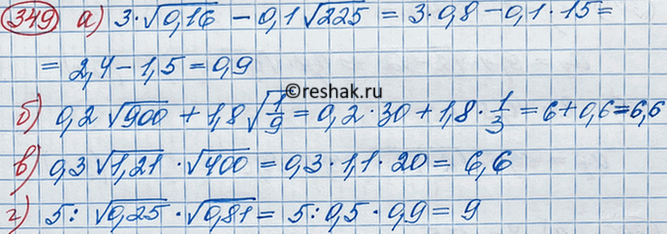 349 а) 3·√0,16 − 0,1√225 = 3·0,8 − 0,1·15 =
= 2,4 − 1,5 = 0,9
©reshak.ru
б) 0,2√900 + 1,8√1/9 = 0,2·30 + 1,8·1/3 = 6 + 0,6 = 6,6
в) 0,3√1,21·√400 = 0,3·1,1·20 = 6,6
г) 5:√0,25·√0,81 = 5:0,5·0,9 = 9